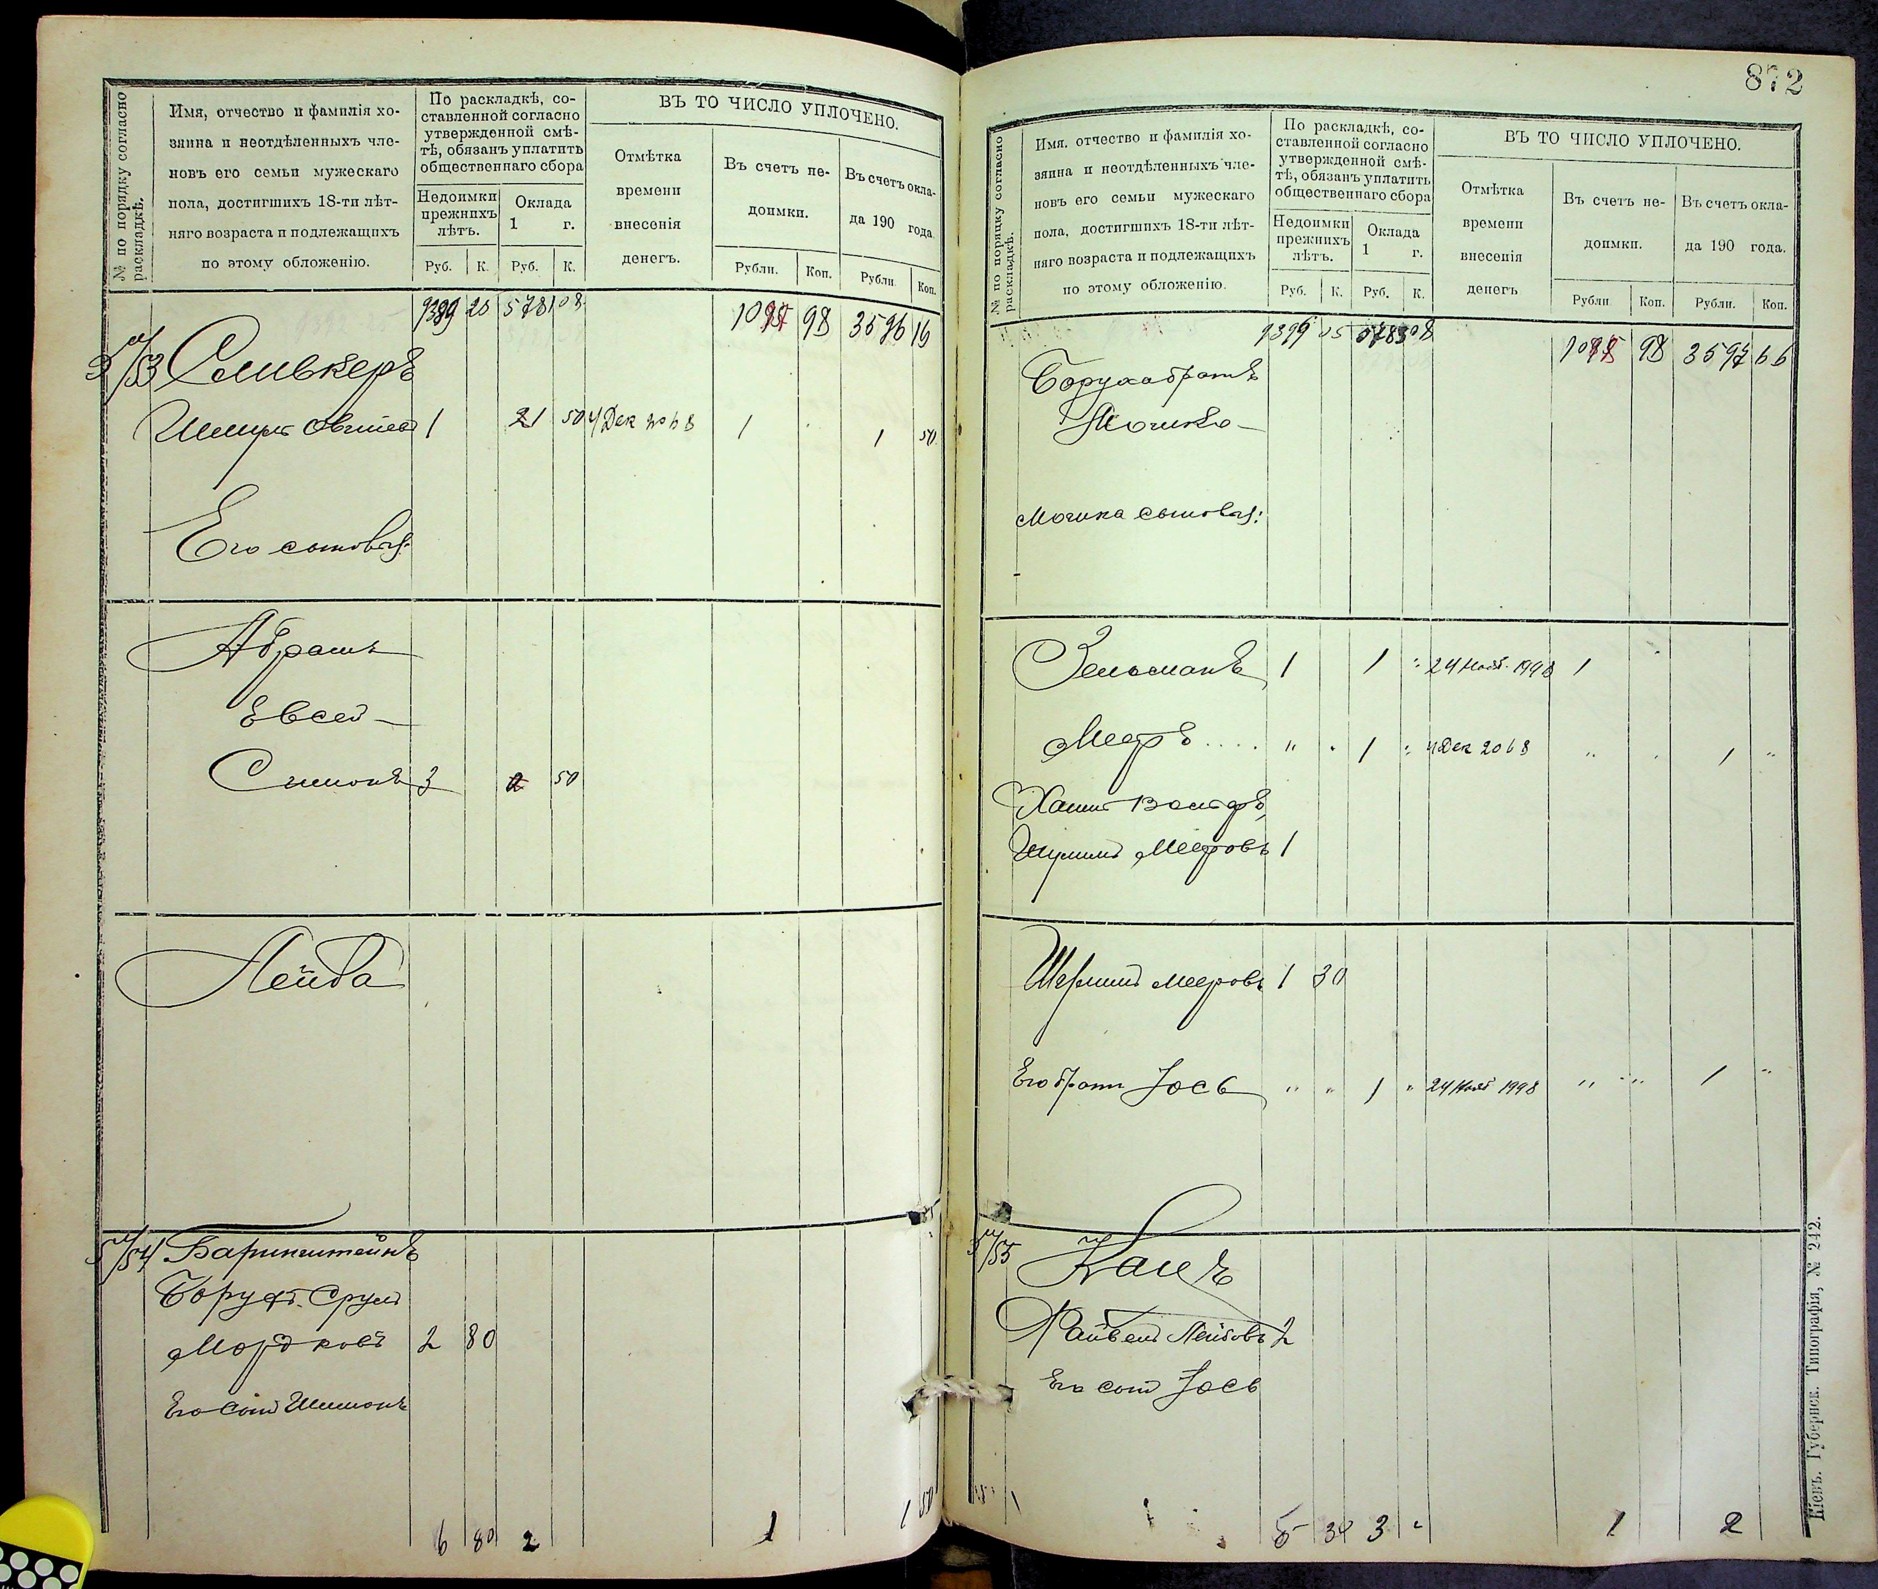 872
№ по порядку согласно раскладкѣ.
Имя, отчество и фамилія хо-
зяина и неотдѣленныхъ чле-
новъ его семьи мужескаго
пола, достигшихъ 18-ти лѣт-
няго возраста и подлежащихъ
по этому обложенію.
По раскладкѣ, со-
ставленной согласно
утвержденной смѣ-
тѣ, обязанъ уплатить
общественнаго сбора
Недоимки
прежнихъ
лѣтъ.
Оклада
1 г.
Руб. К. Руб. К.
ВЪ ТО ЧИСЛО УПЛОЧЕНО.
Отмѣтка
времени
внесенія
денегъ.
Въ счетъ не-
доимки.
Въ счетъ окла-
да 190 года.
Рубли. Коп. Рубли Коп.
98 3596 16
Сливкеръ
1 50 4 Дек 2068 1 1 50
Его сыновья:
Абрамъ
Евсей
Симонъ 3 2 50
Лейба
5/54 Баринштейнъ
Борухъ Срулъ
Мордковъ 2 80
Его сынъ Шимонъ
6 80 2 1 1 50
№ по порядку согласно раскладкѣ.
Имя, отчество и фамилія хо-
зяина и неотдѣленныхъ чле-
новъ его семьи мужескаго
пола, достигшихъ 18-ти лѣт-
няго возраста и подлежащихъ
по этому обложенію.
По раскладкѣ, со-
ставленной согласно
утвержденной смѣ-
тѣ, обязанъ уплатить
общественнаго сбора
Недоимки
прежнихъ
лѣтъ.
Оклада
1 г.
Руб. К. Руб. К.
ВЪ ТО ЧИСЛО УПЛОЧЕНО.
Отмѣтка
времени
внесенія
денегъ
Въ счетъ не-
доимки.
Въ счетъ окла-
да 190 года.
Рубли Коп. Рубли. Коп.
98 3597 66
Боруха братъ
Мошко
Мошка сыновья:
Зельманъ 1 1 " 24 Нояб. 1998 1
Мееръ .... " " 1 " 4 Дек 2068 " " 1 "
Мееровъ 1
Мееровъ 1 30
Его братъ Іось " " 1 " 24 Нояб 1998 " " 1 "
5/55 Кацъ
Файвель Лейбовъ 2
Его сынъ Іось
5 30 3 " 1 2
Кіевъ. Губернск. Типографія, № 242.